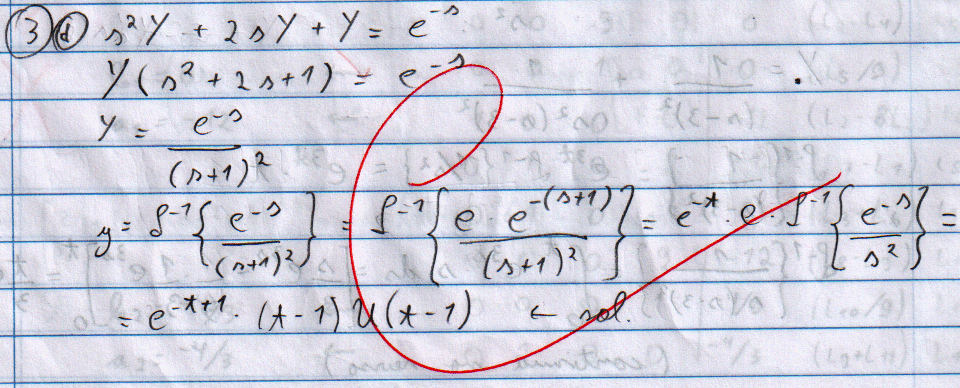 3 d) s²Y + 2sY + Y = e^{-s}
Y(s² + 2s + 1) = e^{-s}
Y = e^{-s} / (s+1)²
y = ℒ^{-1}{ e^{-s} / (s+1)² } = ℒ^{-1}{ e · e^{-(s+1)} / (s+1)² } = e^{-t} · e · ℒ^{-1}{ e^{-s} / s² } =
= e^{-t+1} · (t-1) U(t-1) ← sol.